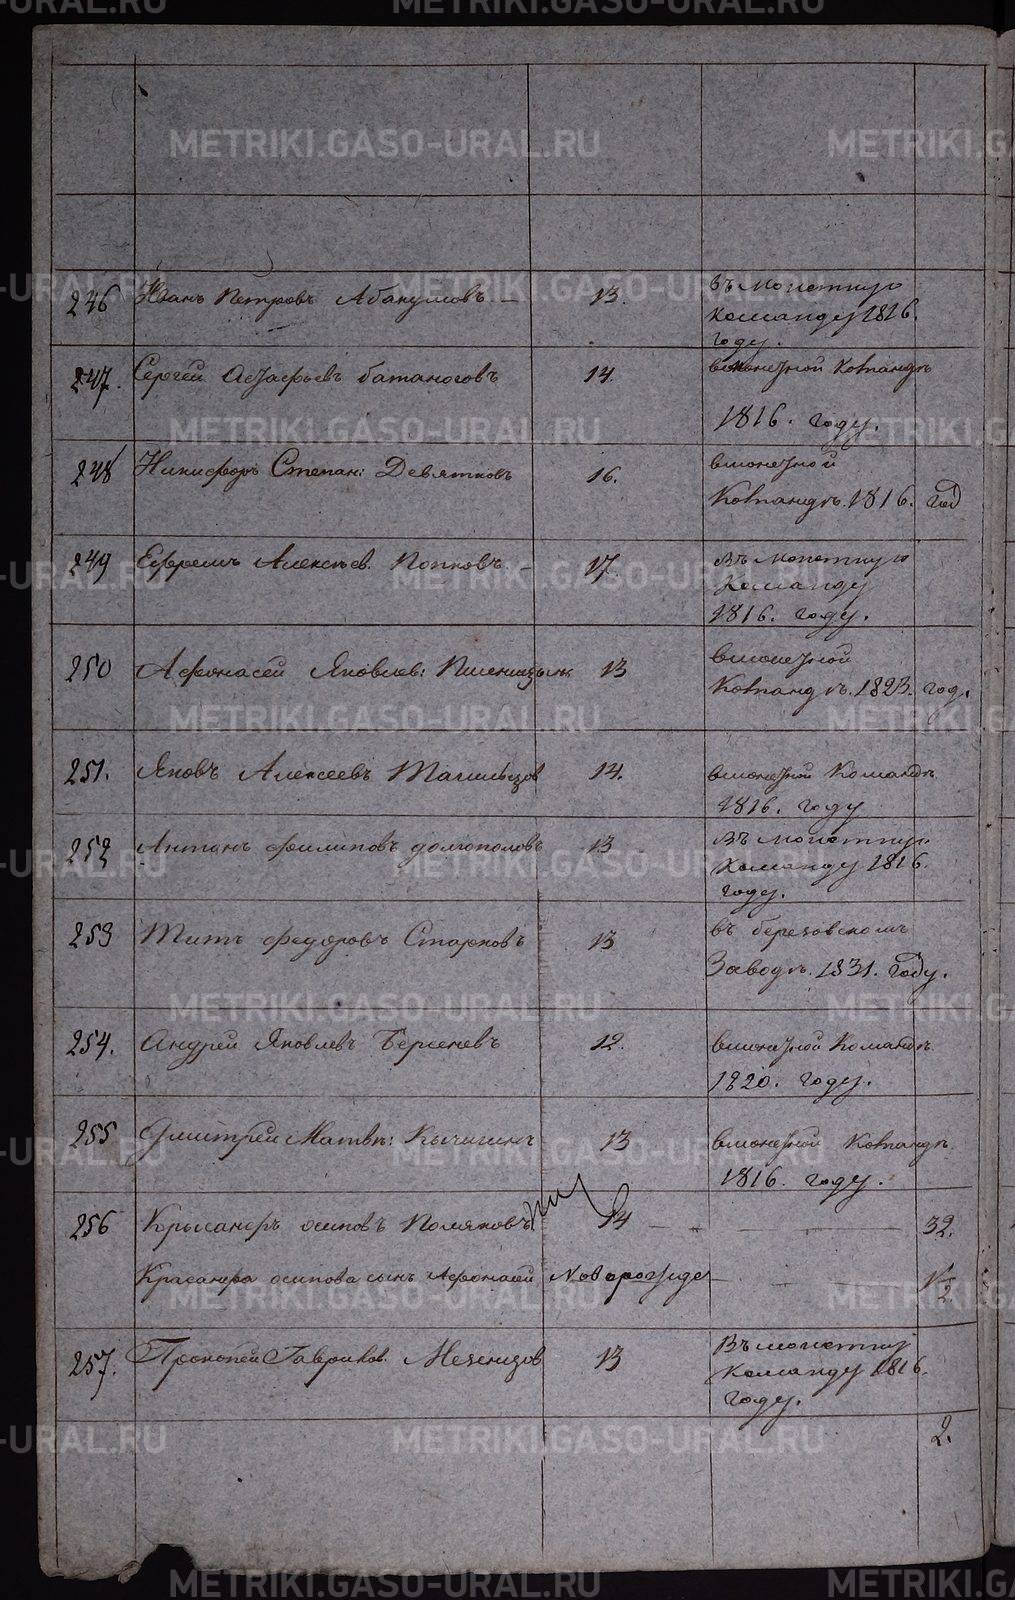 METRIKI.GASO-URAL.RU
246 Иванъ Петровъ Абакумовъ — 13. Въ монетную
команду 1816.
году.
247. Сергей Астафьевъ батаноговъ 14. вмонетной Командѣ
1816. году.
248 Никифоръ Степан: Девятковъ 16. вмонетной
Командѣ. 1816. год
249 Ефремъ Алексѣев. Попковъ — 17. Въ монетную
Команду
1816. году.
250 Афонасей Яковлев: 13 вмонетной
Командѣ. 1823. год.
251. Яковъ Алексеевъ Тагильцов 14. вмонетной Командѣ
1816. году
252 Антонъ филиповъ долгополовъ 13 Въ монетную
Команду 1816.
году.
253 Титъ федоровъ Старковъ 13 въ березовскомъ
Заводѣ. 1831. году.
254. Андрей Яковлевъ Берсеневъ 12. вмонетной Командѣ
1820. году.
255 Дмитрей Матвѣ: Кычигинъ 13 вмонетной Командѣ
1816. году.
256 осиповъ Поляковъ 14 — — 32.
осипова сынъ Афонасей Новорожде — —
2
257. Прокопей Гаврилов. Мезенцов 13 Въ монетную
Команду 1816.
году.
2.